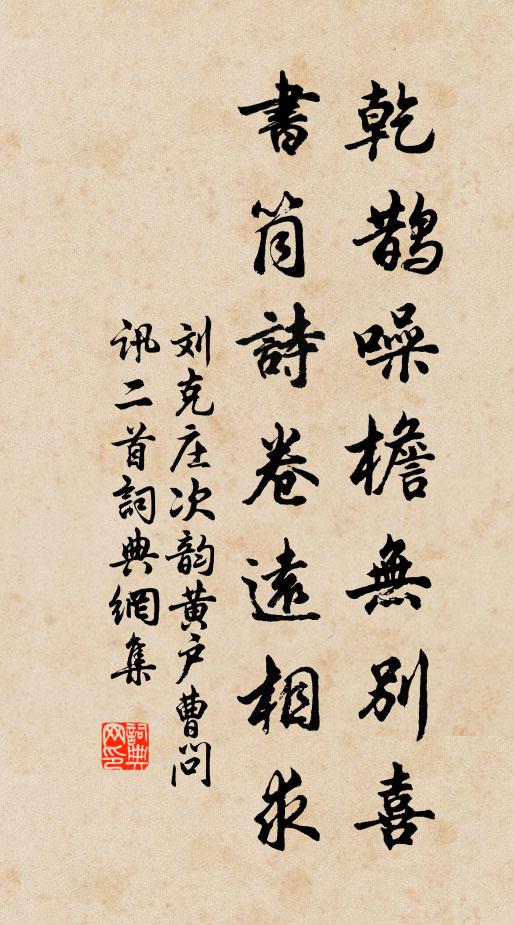 乾鵲噪檐無別喜
書筒詩卷遠相求
刘克庄次韵黄户曹问
讯二首詞典網集
詞典网印